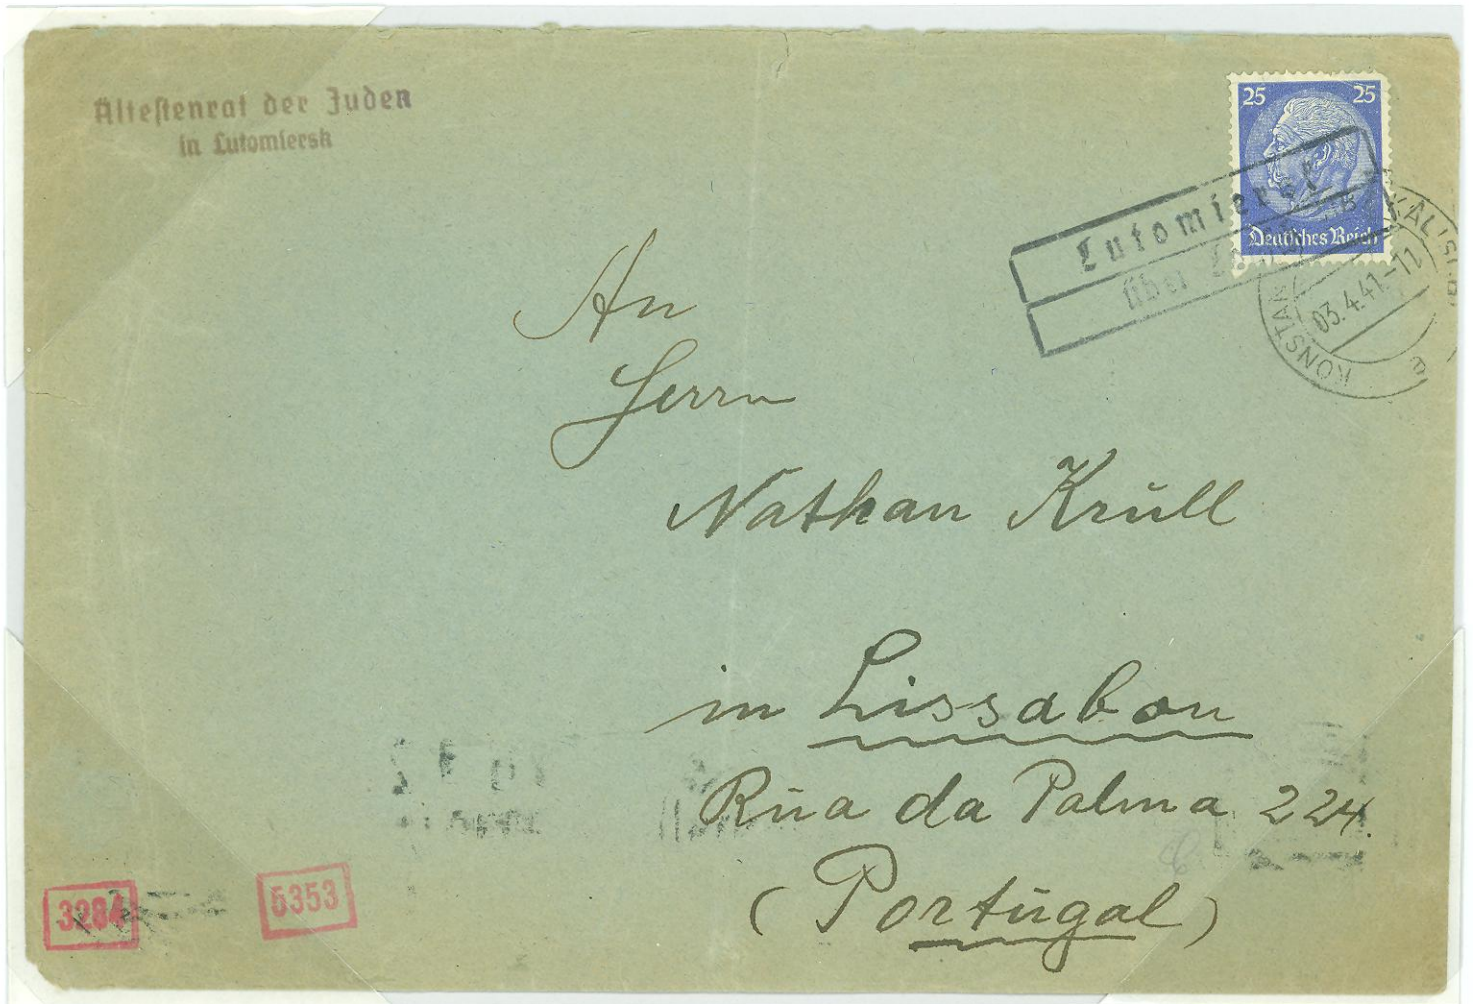 Ältestenrat der Juden
in Lutomiersk
25 25
Deutsches Reich
Lutomiersk
über
03.4.41.-11
e
An
Herrn
Nathan Krŭll
in Lissabon
Rŭa da Palma 224.
(Portŭgal)
3284
5353